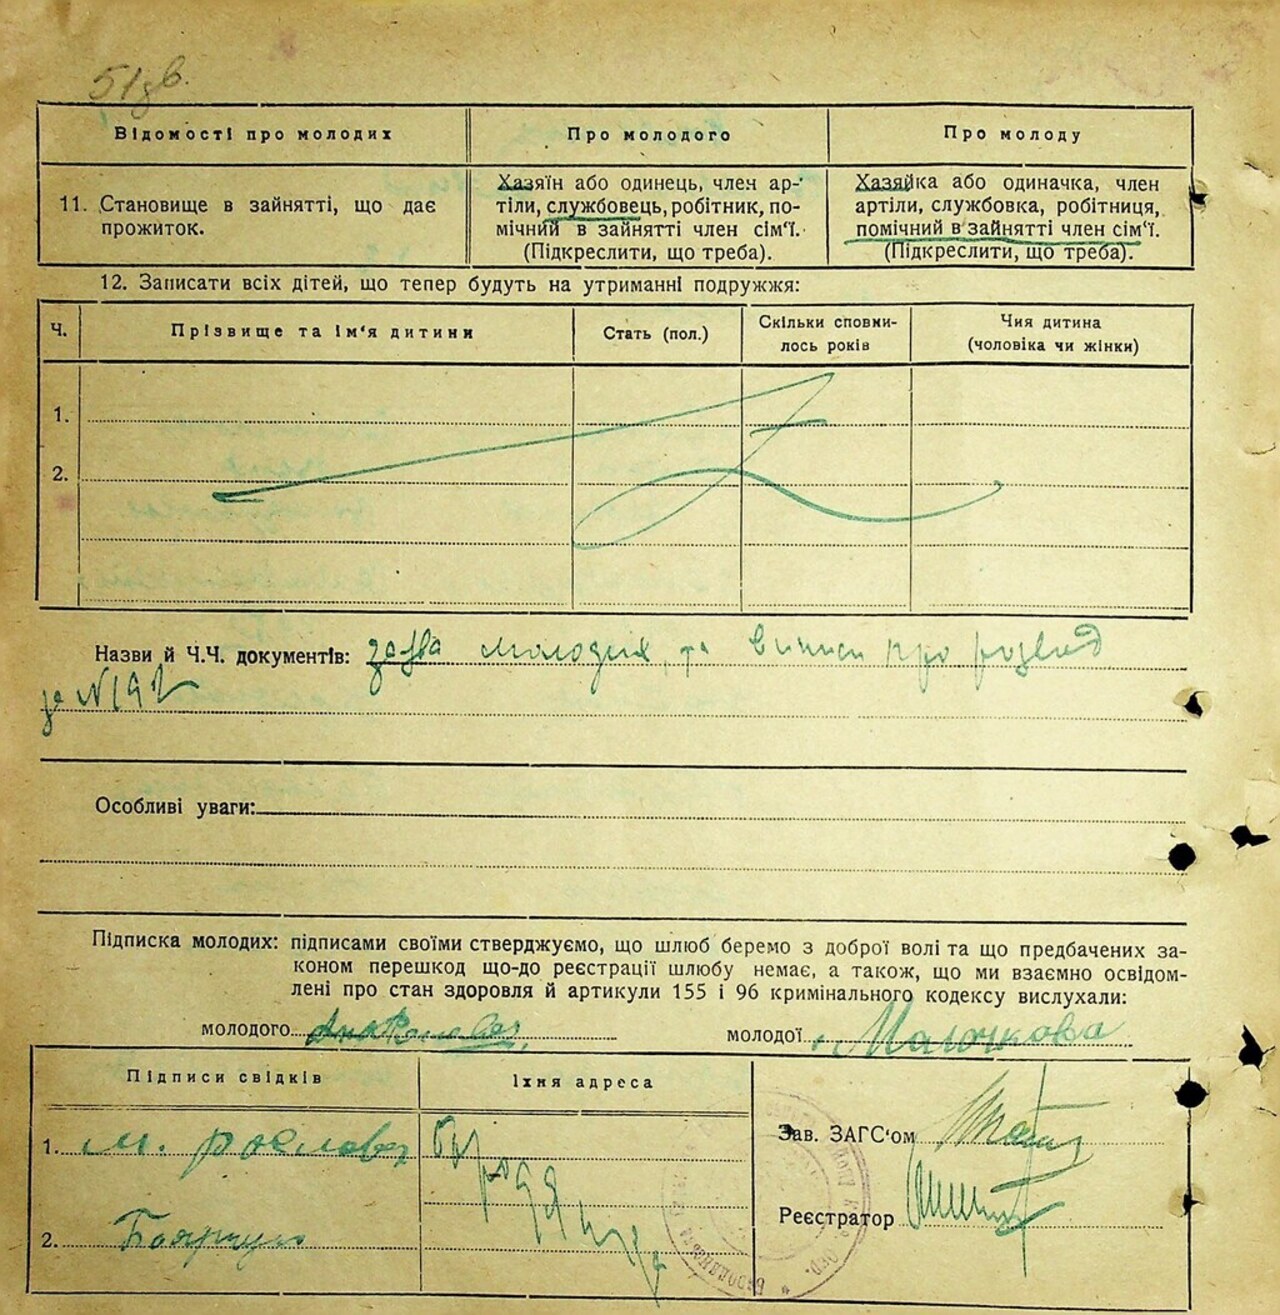 51зв.
Відомості про молодих
Про молодого
Про молоду
11. Становище в зайнятті, що дає
прожиток.
Хазяїн або одинець, член ар-
тіли, службовець, робітник, по-
мічний в зайнятті член сім‘ї.
(Підкреслити, що треба).
Хазяйка або одиначка, член
артіли, службовка, робітниця,
помічний в зайнятті член сім‘ї.
(Підкреслити, що треба).
12. Записати всіх дітей, що тепер будуть на утриманні подружжя:
Ч.
Прізвище та ім‘я дитини
Стать (пол.)
Скільки сповни-
лось років
Чия дитина
(чоловіка чи жінки)
1.
2.
Назви й Ч.Ч. документів: заява молодих, та виписи про розвид
за N 192
Особливі уваги:
Підписка молодих: підписами своїми стверджуємо, що шлюб беремо з доброї волі та що предбачених за-
коном перешкод що-до реєстрації шлюбу немає, а також, що ми взаємно освідом-
лені про стан здоровля й артикули 155 і 96 кримінального кодексу вислухали:
молодого
молодої Малочкова
Підписи свідків
Їхня адреса
1. М.
2.
Зав. ЗАГС‘ом
Реєстратор